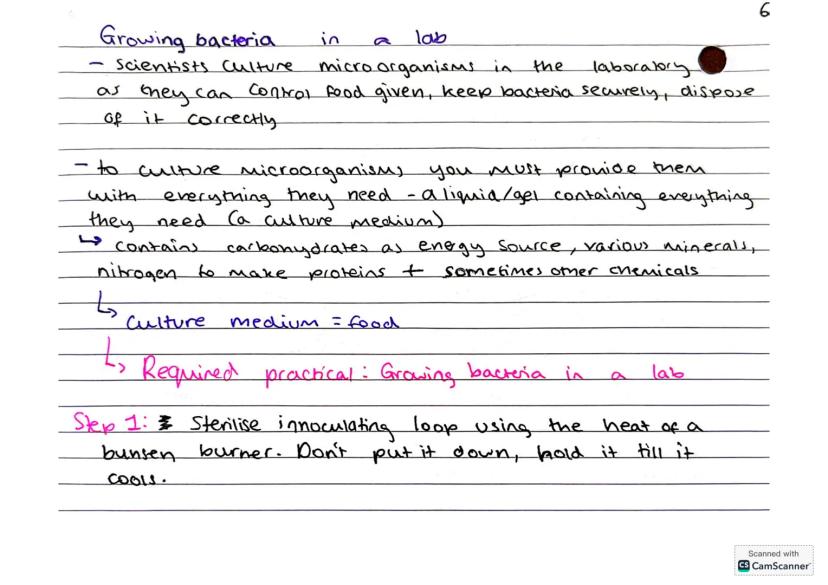 6
Growing bacteria in a lab
- Scientists culture microorganisms in the laboratory
as they can control food given, keep bacteria securely, dispose
of it correctly
- to culture microorganisms you must provide them
with everything they need - a liquid/gel containing everything
they need (a culture medium)
↳ contains carbohydrates as energy source, various minerals,
nitrogen to make proteins + sometimes other chemicals
↳ culture medium = food
↳ Required practical: Growing bacteria in a lab
Step 1: Sterilise innoculating loop using the heat of a
bunsen burner. Don't put it down, hold it till it
cools.
Scanned with
CS CamScanner